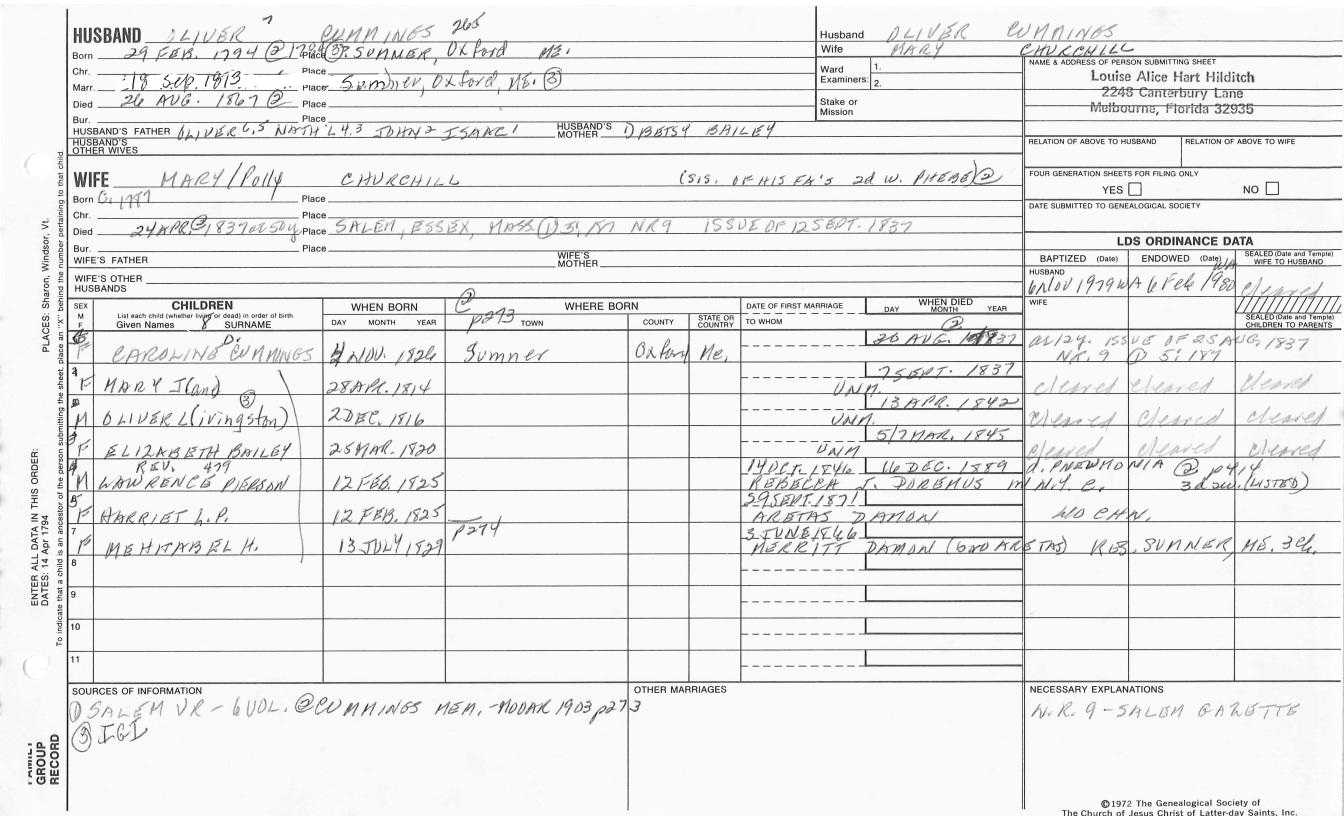 HUSBAND OLIVER 7 CUMMINGS 265
Born 29 FEB. 1794 @ Place SUMNER, Oxford ME.
Chr. Place
Marr. 18 Sep. 1813 Place Sumner, Oxford, ME. ③
Died 26 AUG. 1867 ② Place
Bur. Place
HUSBAND'S FATHER OLIVER 6,5 NATH'L 4,3 JOHN 2 ISAAC 1 HUSBAND'S MOTHER ① BETSY BAILEY
HUSBAND'S OTHER WIVES
Husband OLIVER CUMMINGS
Wife MARY CHURCHILL
Ward 1.
Examiners: 2.
Stake or Mission
NAME & ADDRESS OF PERSON SUBMITTING SHEET
Louise Alice Hart Hilditch
2248 Canterbury Lane
Melbourne, Florida 32935
RELATION OF ABOVE TO HUSBAND RELATION OF ABOVE TO WIFE
FOUR GENERATION SHEETS FOR FILING ONLY
YES NO
DATE SUBMITTED TO GENEALOGICAL SOCIETY
WIFE MARY/Polly CHURCHILL (SIS. OF HIS FA'S 2d W. PHEBE) ②
Born C. 1787 Place
Chr. Place
Died 24 APR. ② 1837 ae 50y Place SALEM, ESSEX, MASS ① 5: NR9 ISSUE OF 12 SEPT. 1837
Bur. Place
WIFE'S FATHER WIFE'S MOTHER
WIFE'S OTHER HUSBANDS
LDS ORDINANCE DATA
BAPTIZED (Date) ENDOWED (Date) SEALED (Date and Temple) WIFE TO HUSBAND
HUSBAND
6 NOV 1979 WA 6 Feb 1980 WA cleared
WIFE
SEALED (Date and Temple) CHILDREN TO PARENTS
SEX M F CHILDREN WHEN BORN ② WHERE BORN DATE OF FIRST MARRIAGE WHEN DIED
List each child (whether living or dead) in order of birth
Given Names 8 SURNAME DAY MONTH YEAR p273 TOWN COUNTY STATE OR COUNTRY TO WHOM DAY MONTH YEAR ②
F CAROLINE D. CUMMINGS NOV. 1826 Sumner Oxford Me. 20 AUG. 1837 ISSUE OF 25 AUG, 1837
NR. 9 ① 5: 187
F MARY J(and) 28 APR. 1814 UNM. 7 SEPT. 1837 cleared cleared cleared
M OLIVER L(ivingston) ③ 2 DEC. 1816 UNM. 13 APR. 1842 cleared cleared cleared
F ELIZABETH BAILEY 25 MAR. 1820 UNM 5/7 MAR. 1845 cleared cleared cleared
M REV. 479 LAWRENCE PIERSON 12 FEB. 1825 14 OCT. 1846 16 DEC. 1889 d. PNEUMONIA @ p414
REBECCA J. DOREMUS N.Y.C. 3d w. (LISTED)
5 F HARRIET L.P. 12 FEB. 1825 29 SEPT. 1871 ARETAS DAMON NO CHN.
p274
7 F MEHITABEL H. 13 JULY 1829 3 JUNE 1866
MERRITT DAMON (bro ARETAS) RES. SUMNER, ME. 3 Ch.
8
9
10
11
SOURCES OF INFORMATION
① SALEM VR - 6 VOL. @ CUMMINGS MEM. - MOOAR 1903 p273
③ IGI
OTHER MARRIAGES
NECESSARY EXPLANATIONS
N.R. 9 - SALEM GAZETTE
©1972 The Genealogical Society of
The Church of Jesus Christ of Latter-day Saints, Inc.
ENTER ALL DATA IN THIS ORDER:
DATES: 14 Apr 1794
PLACES: Sharon, Windsor, Vt.
To indicate that a child is an ancestor of the person submitting the sheet, place an "X" behind the number pertaining to that child
FAMILY GROUP RECORD